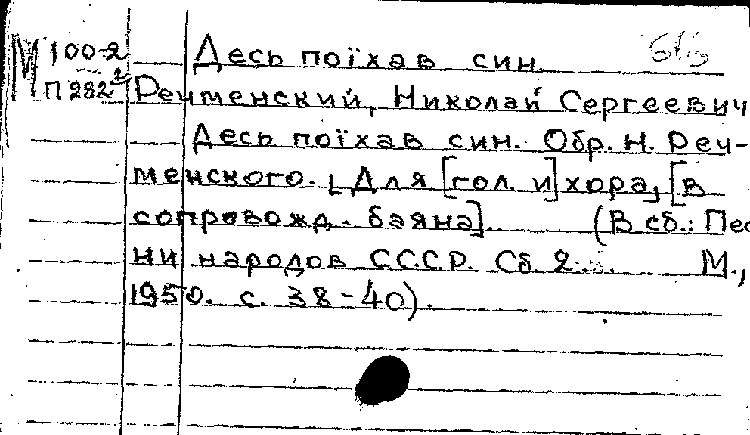 М 100-2 Десь поїхав син
П 282² Речменский, Николай Сергеевич
Десь поїхав син. Обр. Н. Реч-
менского. Для [гол. и] хора, [в
сопровожд. баяна]. (В сб.: Пес
ни народов С.С.С.Р. Сб. 2. М.,
1950. с. 38-40).